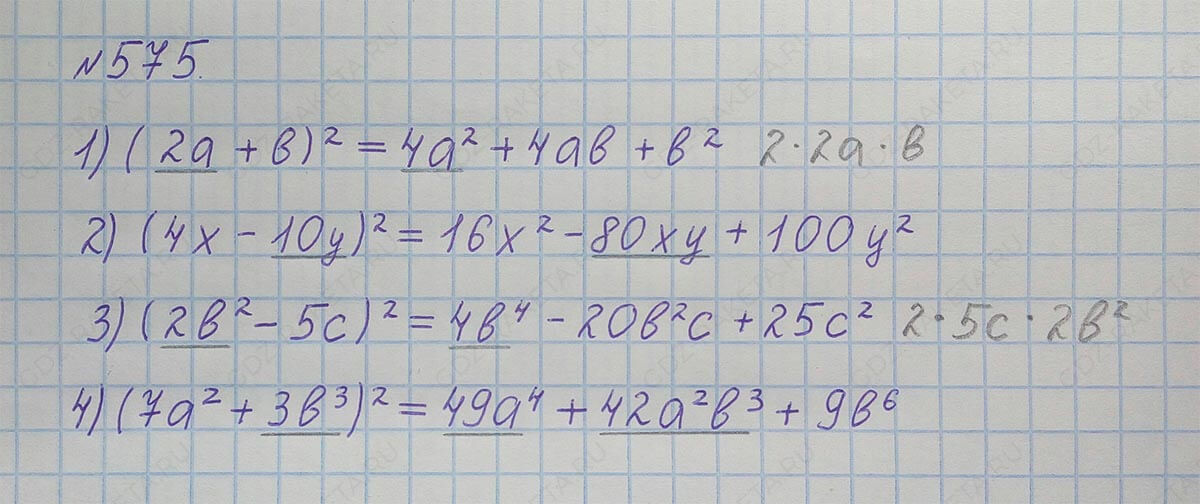 №575.
1) (2a + b)² = 4a² + 4ab + b² 2·2a·b
2) (4x - 10y)² = 16x² - 80xy + 100y²
3) (2b² - 5c)² = 4b⁴ - 20b²c + 25c² 2·5c·2b²
4) (7a² + 3b³)² = 49a⁴ + 42a²b³ + 9b⁶